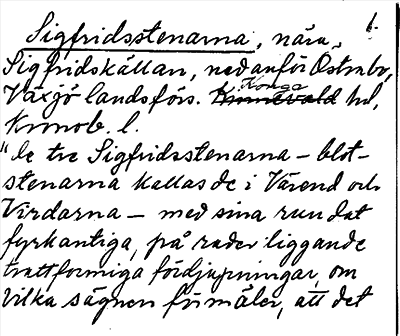 1.
Sigfridsstenarna, nära
Sigfridskällan, nedanför Östrabo,
Växjö landsförs. Konga Kinnevald hd,
Kronob. l.
"De tre Sigfridsstenarna – blot-
stenarna kallas de i Värend och
Virdarna – med sina rundat
fyrkantiga, på rader liggande
trattformiga fördjupningar, om
vilka sägnen förmäler, att det